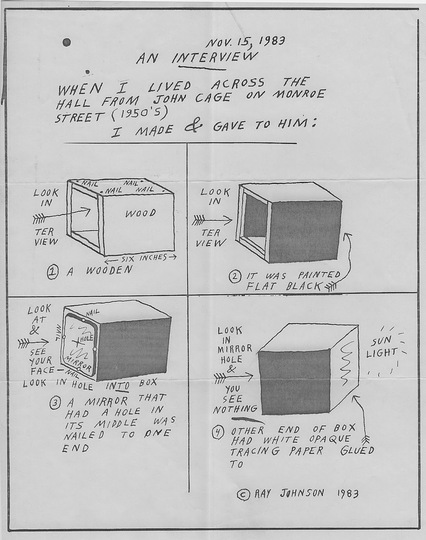 NOV. 15, 1983
AN INTERVIEW
WHEN I LIVED ACROSS THE
HALL FROM JOHN CAGE ON MONROE
STREET (1950'S)
I MADE & GAVE TO HIM:
LOOK
IN
TER
VIEW
NAIL
NAIL
NAIL
NAIL
WOOD
SIX INCHES
1 A WOODEN
LOOK
IN
TER
VIEW
2 IT WAS PAINTED
FLAT BLACK
LOOK
AT
&
SEE
YOUR
FACE
NAIL
NAIL
HOLE
MIRROR
NAIL
LOOK IN HOLE INTO BOX
3 A MIRROR THAT
HAD A HOLE IN
ITS MIDDLE WAS
NAILED TO ONE
END
LOOK
IN
MIRROR
HOLE
&
YOU
SEE
NOTHING
SUN
LIGHT
4 OTHER END OF BOX
HAD WHITE OPAQUE
TRACING PAPER GLUED
TO
© RAY JOHNSON 1983